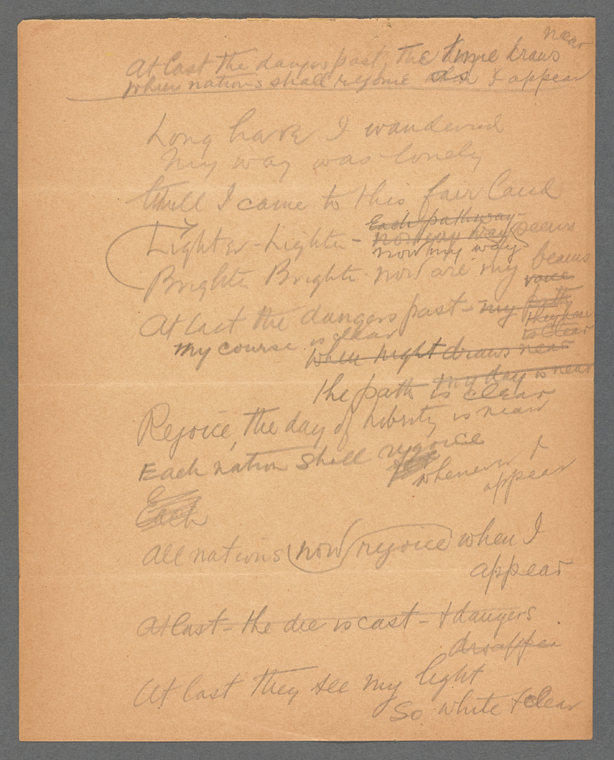 near
At Last the dangers past, the time draws
when nations shall rejoice as I appear
Long have I wandered
My way was lonely
till I came to this fair Land
Each pathway
Lighter - Lighter - now my way seems
now my way
Brighter Brighter now are my beams
voice
At Last the dangers past - my path
they hear
is clear
My course is clear
when night draws near
my day is near
the path is clear
Rejoice, the day of Liberty is near
Each nation shall rejoice
whenever I
appear
Each
All nations now rejoice when I
appear
At last - the die is cast - & dangers
disappear
At last they see my light
So white & clear